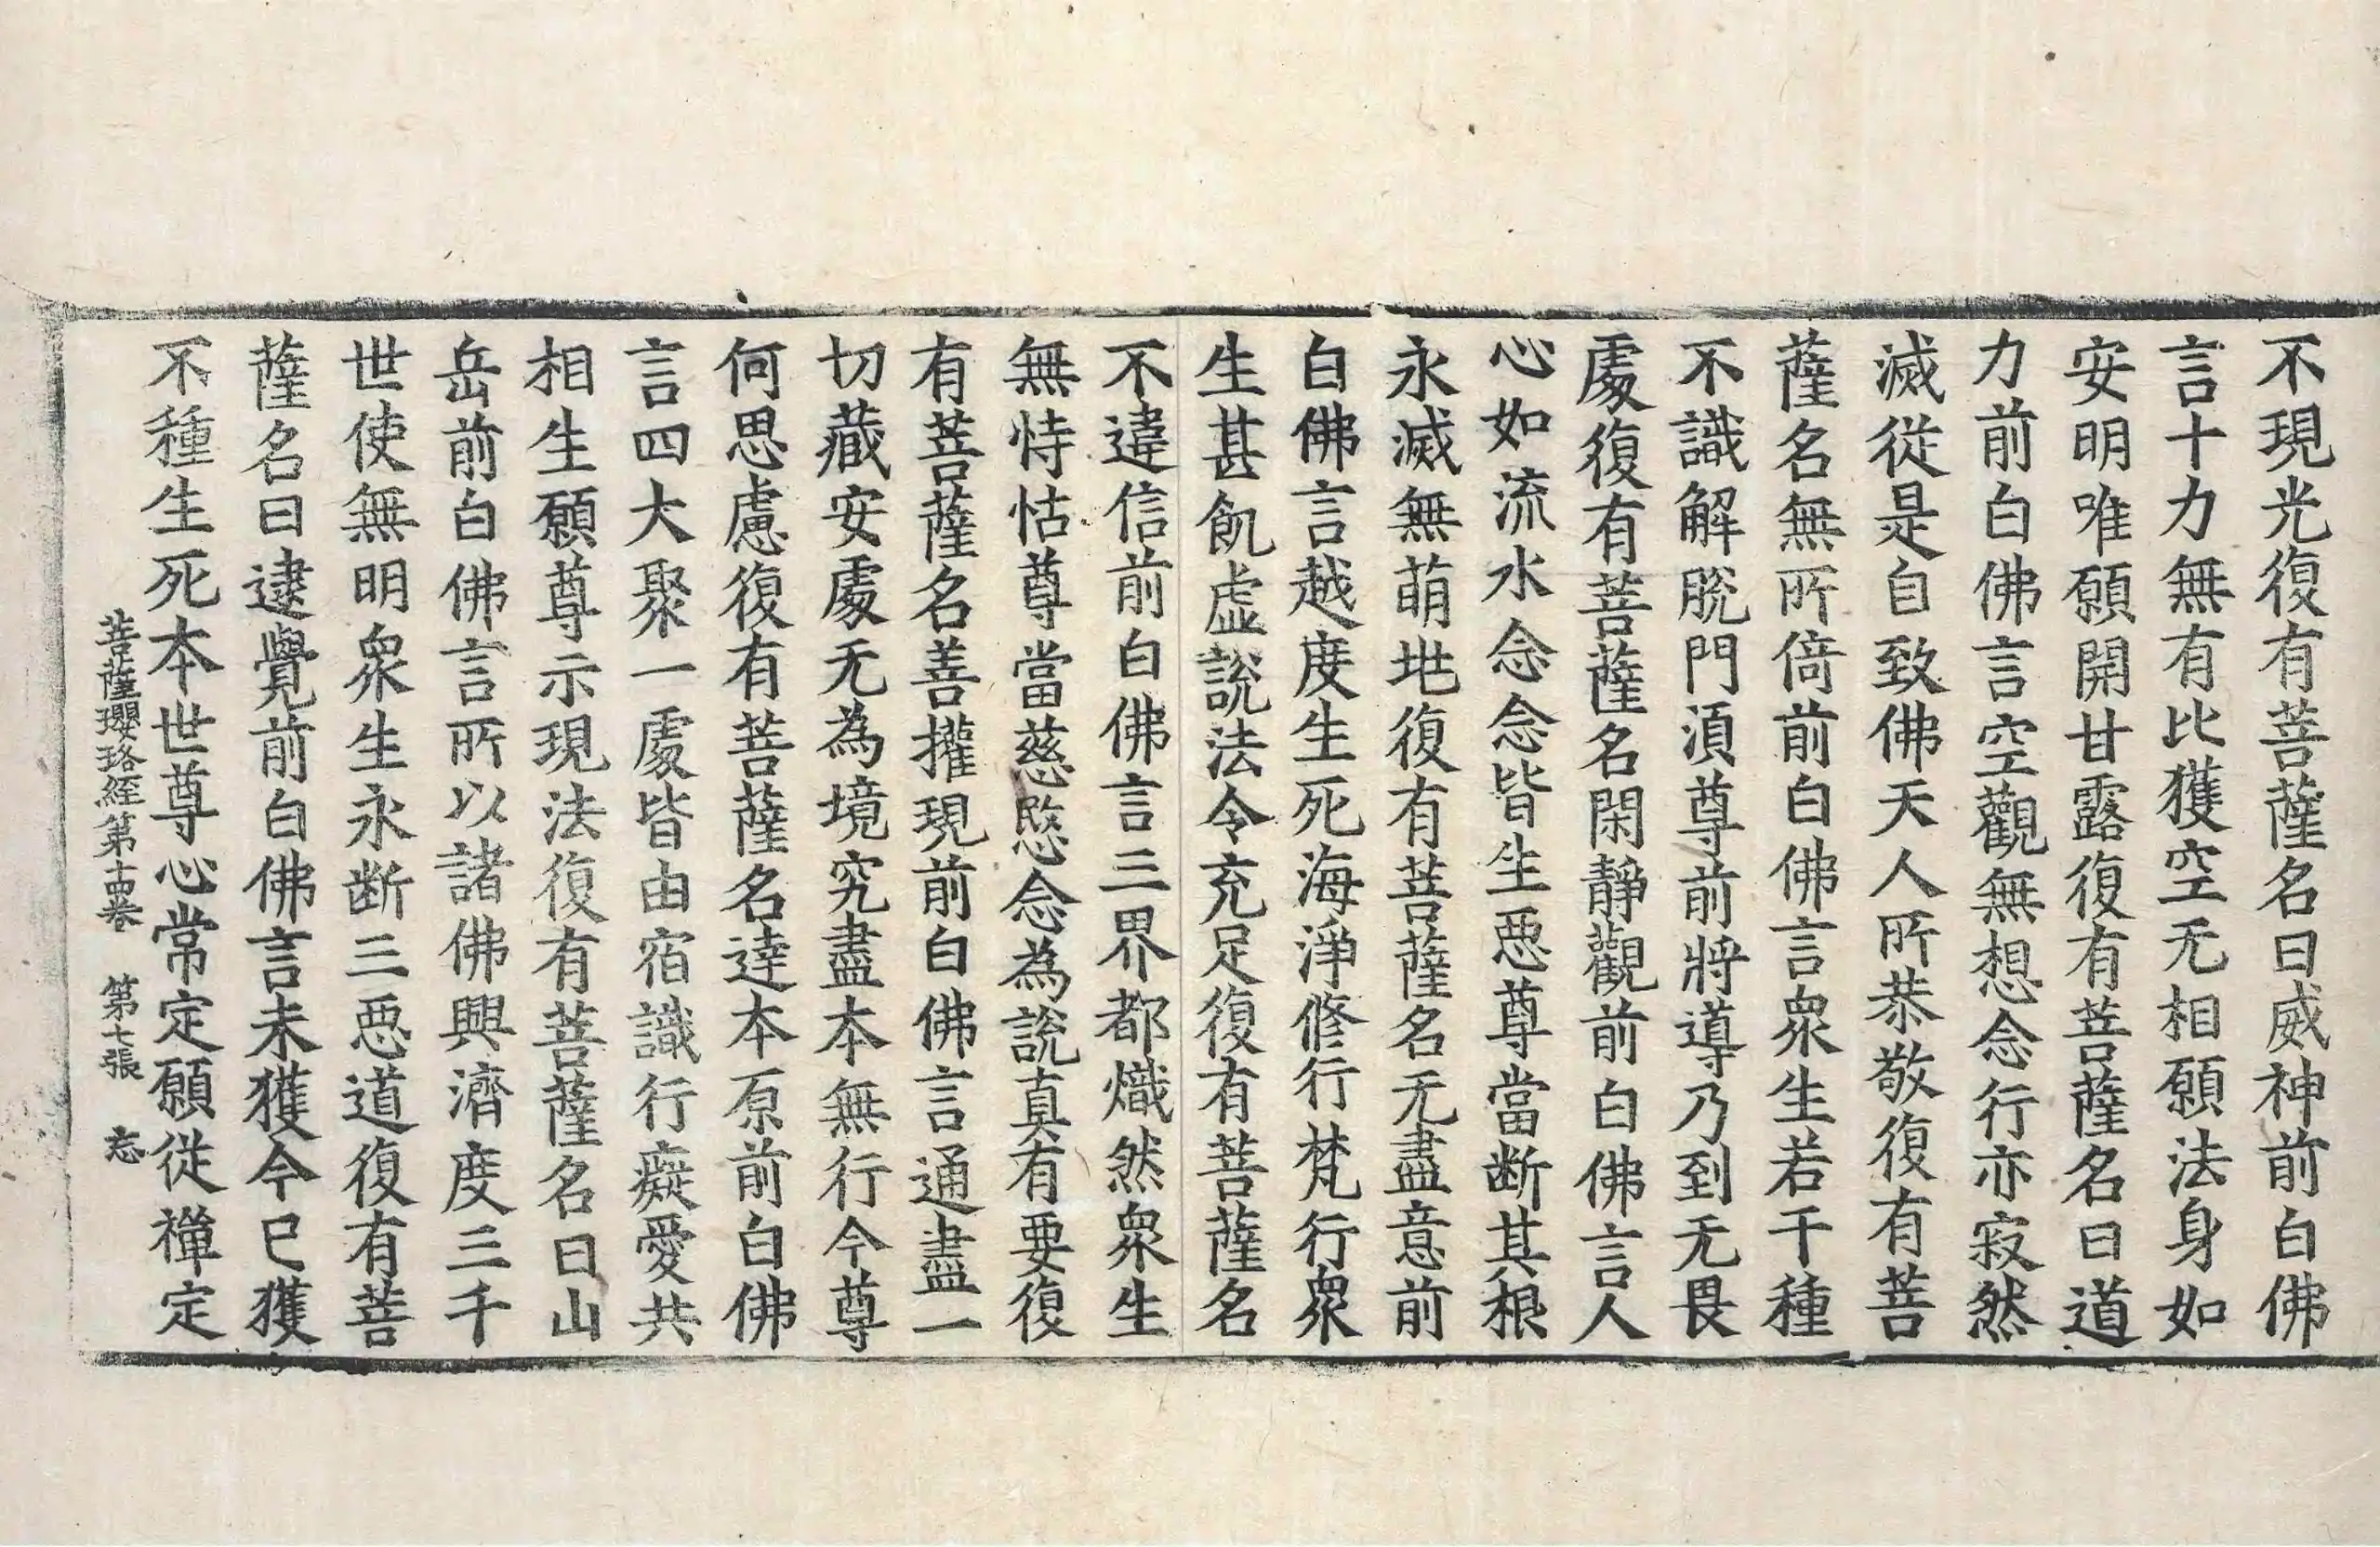 不現光復有菩薩名曰威神前白佛
言十力無有比獲空无相願法身如
安明唯願開甘露復有菩薩名曰道
力前白佛言空觀無想念行亦寂然
滅從是自致佛天人所恭敬復有菩
薩名無所倚前白佛言衆生若干種
不識解脫門湏尊前將導乃到无畏
處復有菩薩名閑靜觀前白佛言人
心如流水念念念皆生惡尊當斷其根
永滅無萌地復有菩薩名无盡意前
白佛言越度生死海淨修行梵行衆
生甚飢虛說法令充足復有菩薩名
不違信前白佛言三界都熾然衆生
無恃怙尊當慈愍念為說真有要復
有菩薩名善權現前白佛言通盡一
切藏安處无為境究盡本無行今尊
何思慮復有菩薩名達本原前白佛
言四大聚一處皆由宿識行癡愛共
相生願尊示現法復有菩薩名曰山
岳前白佛言所以諸佛興濟度三千
世使無明衆生永斷三惡道復有菩
薩名曰逮覺前白佛言未獲今已獲
不種生死本世尊心常定願從禪定
菩薩瓔珞經第十四卷 第七張 忘